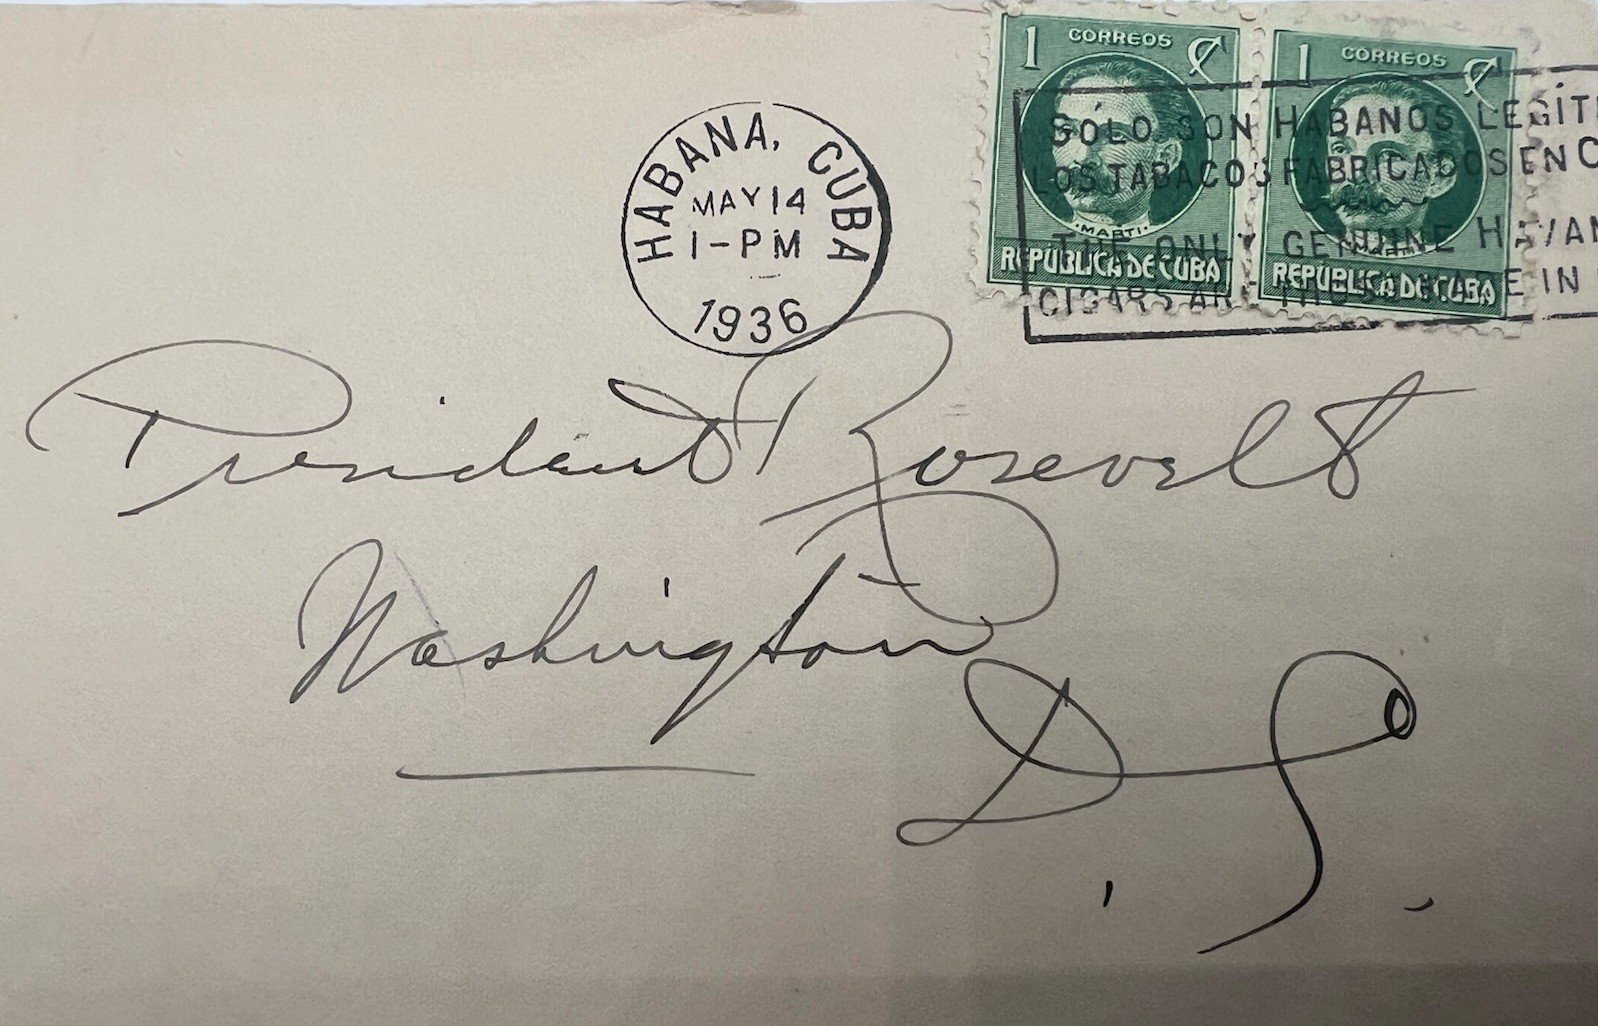 1 CORREOS ₵
1 CORREOS ₵
MARTI
REPUBLICA DE CUBA
REPUBLICA DE CUBA
HABANA, CUBA
MAY 14
1-PM
1936
SÓLO SON HABANOS LEGITI
LOS TABACOS FABRICADOS EN C
THE ONLY GENUINE HAVAN
CIGARS ARE THOSE MADE IN
President Rosevelt
Washington
D. C.